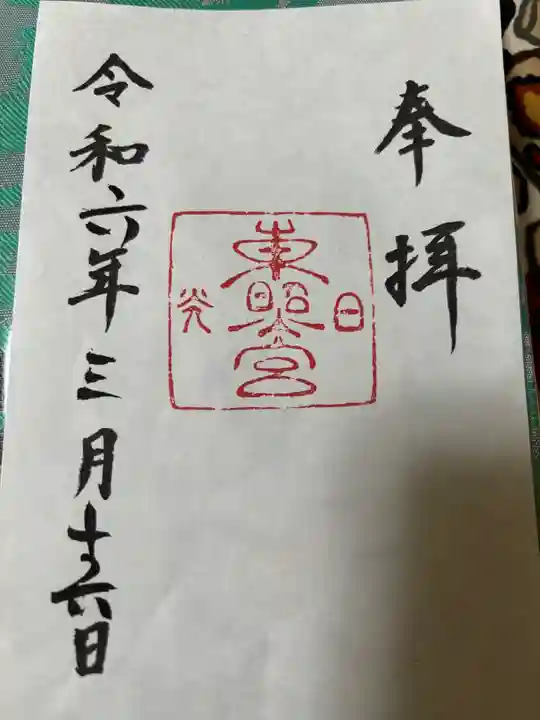 奉拝
日
東照宮
光
令和六年三月十六日